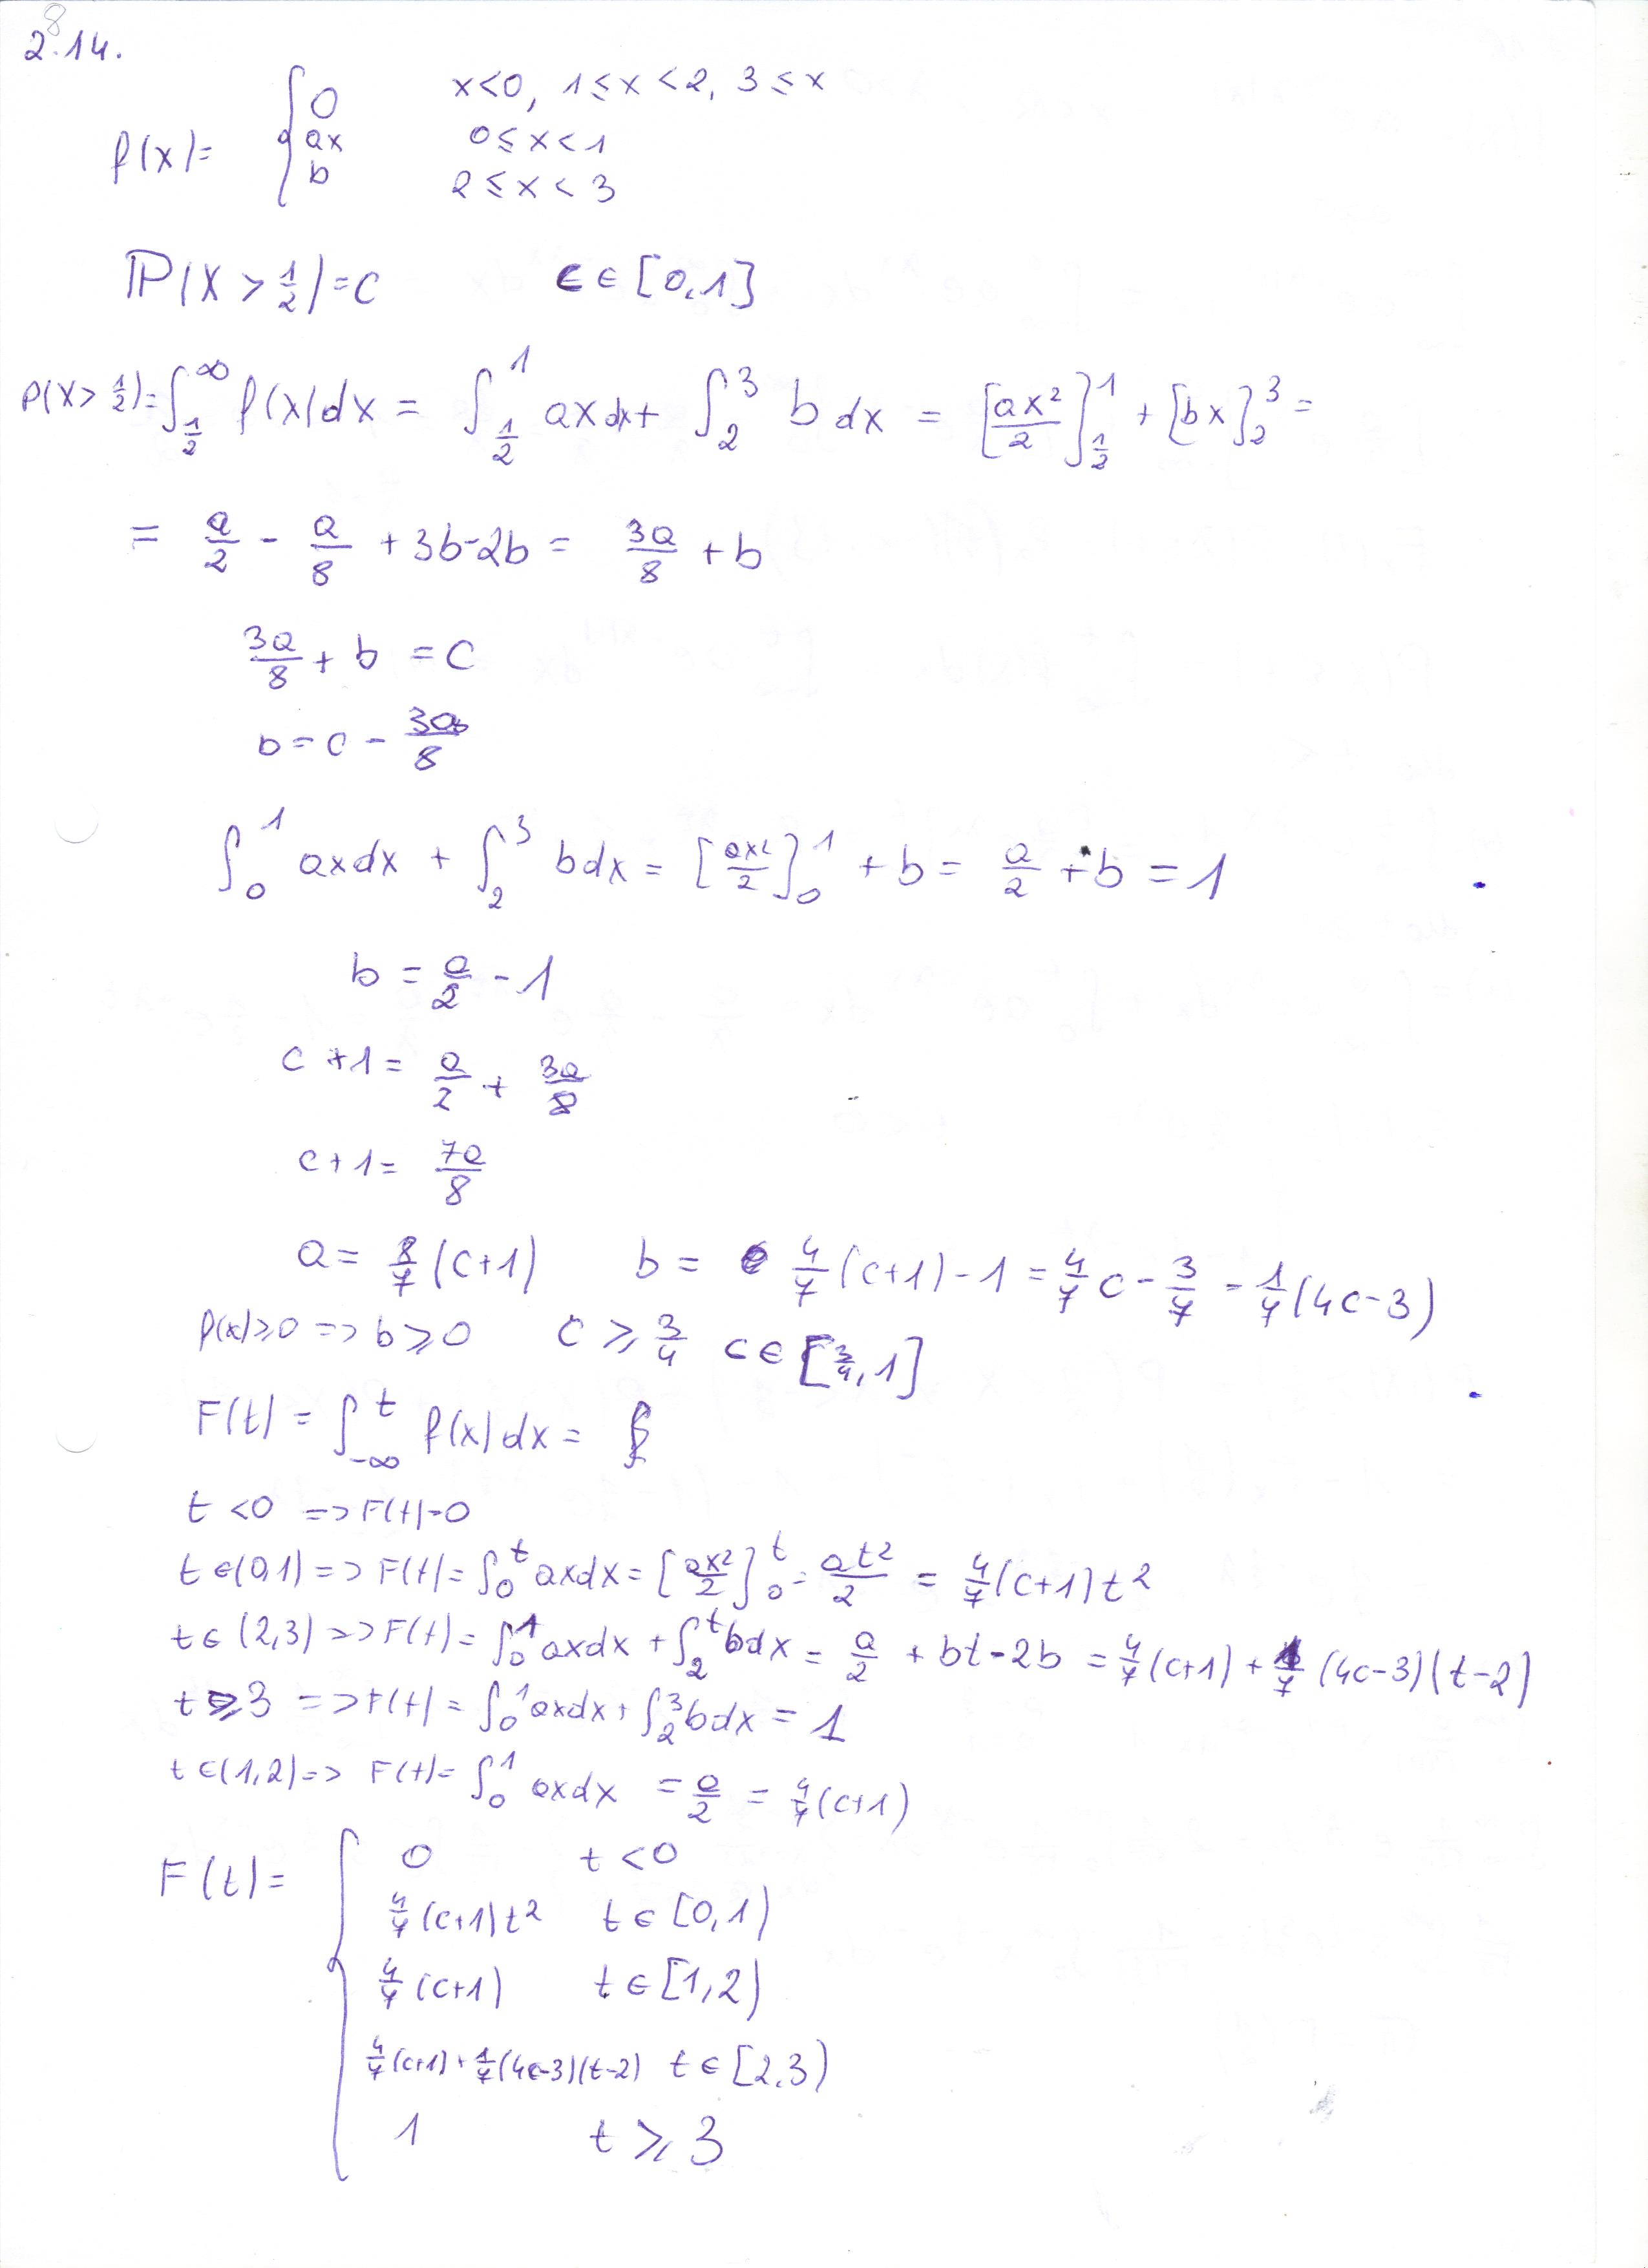 2.14.
8
f(x)= { 0 x<0, 1≤x<2, 3≤x
ax 0≤x<1
b 2≤x<3
ℙ(X>1/2)=c c∈[0,1]
P(X>1/2)=∫_{1/2}^{∞} f(x)dx = ∫_{1/2}^{1} axdx+ ∫_2^3 b dx = [ax²/2]_{1/2}^{1} + [bx]_2^3 =
= a/2 - a/8 + 3b-2b = 3a/8 + b
3a/8 + b = c
b=c - 3a/8
∫_0^1 axdx + ∫_2^3 bdx = [ax²/2]_0^1 + b = a/2 + b = 1
b = a/2 - 1
c+1 = a/2 + 3a/8
c+1 = 7a/8
a = 8/7 (c+1) b = 4/7 (c+1) - 1 = 4/7 c - 3/7 = 1/7 (4c-3)
f(x)≥0 => b≥0 c ≥ 3/4 c∈[3/4,1]
F(t) = ∫_{-∞}^{t} f(x)dx =
t<0 => F(t)=0
t∈(0,1) => F(t)= ∫_0^t axdx = [ax²/2]_0^t = at²/2 = 4/7(c+1)t²
t∈(2,3) => F(t)= ∫_0^1 axdx + ∫_2^t bdx = a/2 + bt-2b = 4/7(c+1) + 1/7 (4c-3)(t-2)
t≥3 => F(t) = ∫_0^1 axdx + ∫_2^3 bdx = 1
t∈(1,2) => F(t)= ∫_0^1 axdx = a/2 = 4/7(c+1)
F(t)= { 0 t<0
4/7(c+1)t² t∈[0,1)
4/7(c+1) t∈[1,2)
4/7(c+1)+1/7(4c-3)(t-2) t∈[2,3)
1 t≥3